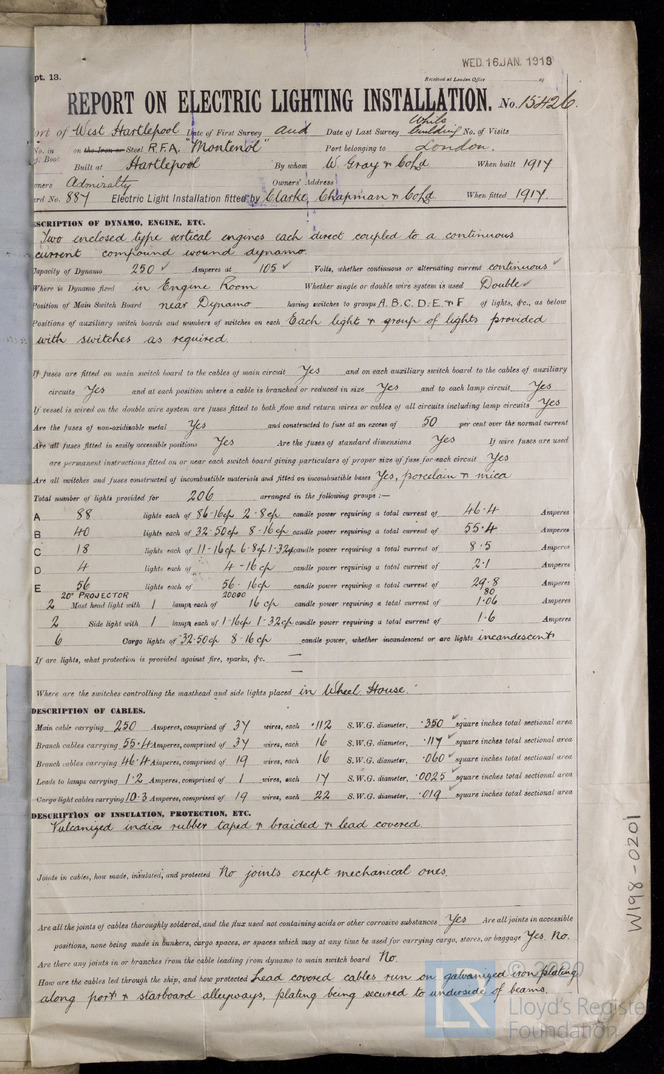 WED. 16 JAN. 1918
pt. 13.
Received at London Office
REPORT ON ELECTRIC LIGHTING INSTALLATION. No. 15426.
ort of West Hartlepool Date of First Survey and Date of Last Survey Whilst Building No. of Visits
No. in on the Iron or Steel R.F.A. "Montenol" Port belonging to London.
g. Book
Built at Hartlepool By whom W. Gray & Co Ld When built 1917
wners Admiralty Owners' Address
ard No. 887 Electric Light Installation fitted by Clarke, Chapman & Co Ld When fitted 1917.
ESCRIPTION OF DYNAMO, ENGINE, ETC.
Two enclosed type vertical engines each direct coupled to a continuous
current compound wound dynamo.
Capacity of Dynamo 250 ✓ Amperes at 105 ✓ Volts, whether continuous or alternating current continuous ✓
Where is Dynamo fixed in Engine Room Whether single or double wire system is used Double ✓
Position of Main Switch Board near Dynamo having switches to groups A, B, C, D, E & F of lights, &c., as below
Positions of auxiliary switch boards and numbers of switches on each Each light & group of lights provided
with switches as required.
If fuses are fitted on main switch board to the cables of main circuit Yes and on each auxiliary switch board to the cables of auxiliary
circuits Yes and at each position where a cable is branched or reduced in size Yes and to each lamp circuit Yes
If vessel is wired on the double wire system are fuses fitted to both flow and return wires or cables of all circuits including lamp circuits Yes
Are the fuses of non-oxidizable metal Yes and constructed to fuse at an excess of 50 per cent over the normal current
Are all fuses fitted in easily accessible positions Yes Are the fuses of standard dimensions Yes If wire fuses are used
are permanent instructions fitted on or near each switch board giving particulars of proper size of fuse for each circuit Yes
Are all switches and fuses constructed of incombustible materials and fitted on incombustible bases Yes, porcelain & mica
Total number of lights provided for 206 arranged in the following groups :—
A 88 lights each of 86-16cp 2-8cp candle power requiring a total current of 46.4 Amperes
B 40 lights each of 32-50cp 8-16cp candle power requiring a total current of 55.4 Amperes
C 18 lights each of 11-16cp 6-8cp 1-32cp candle power requiring a total current of 8.5 Amperes
D 4 lights each of 4-16cp candle power requiring a total current of 2.1 Amperes
E 56 lights each of 56-16cp candle power requiring a total current of 29.8 Amperes
20" PROJECTOR 20000 80
2 Mast head light with 1 lamps each of 16 cp candle power requiring a total current of 1.06 Amperes
2 Side light with 1 lamps each of 1-16cp 1-32cp candle power requiring a total current of 1.6 Amperes
6 Cargo lights of 32-50cp 8-16cp candle power, whether incandescent or arc lights incandescent
If arc lights, what protection is provided against fire, sparks, &c. —
Where are the switches controlling the masthead and side lights placed in Wheel House.
DESCRIPTION OF CABLES.
Main cable carrying 250 Amperes, comprised of 37 wires, each .112 S.W.G. diameter, .350 ✓ square inches total sectional area
Branch cables carrying 55.4 Amperes, comprised of 37 wires, each 16 S.W.G. diameter, .117 ✓ square inches total sectional area
Branch cables carrying 46.4 Amperes, comprised of 19 wires, each 16 S.W.G. diameter, .060 ✓ square inches total sectional area
Leads to lamps carrying 1.2 Amperes, comprised of 1 wires, each 17 S.W.G. diameter, .0025 ✓ square inches total sectional area
Cargo light cables carrying 10.3 Amperes, comprised of 19 wires, each 22 S.W.G. diameter, .019 ✓ square inches total sectional area
DESCRIPTION OF INSULATION, PROTECTION, ETC.
Vulcanized india rubber taped & braided & lead covered.
Joints in cables, how made, insulated, and protected No joints except mechanical ones.
Are all the joints of cables thoroughly soldered, and the flux used not containing acids or other corrosive substances Yes Are all joints in accessible
positions, none being made in bunkers, cargo spaces, or spaces which may at any time be used for carrying cargo, stores, or baggage Yes No.
Are there any joints in or branches from the cable leading from dynamo to main switch board No.
How are the cables led through the ship, and how protected Lead covered cables run on galvanized iron plating
along port & starboard alleyways, plating being secured to underside of beams.
W198-0201
© 2020
Lloyd's Register
Foundation